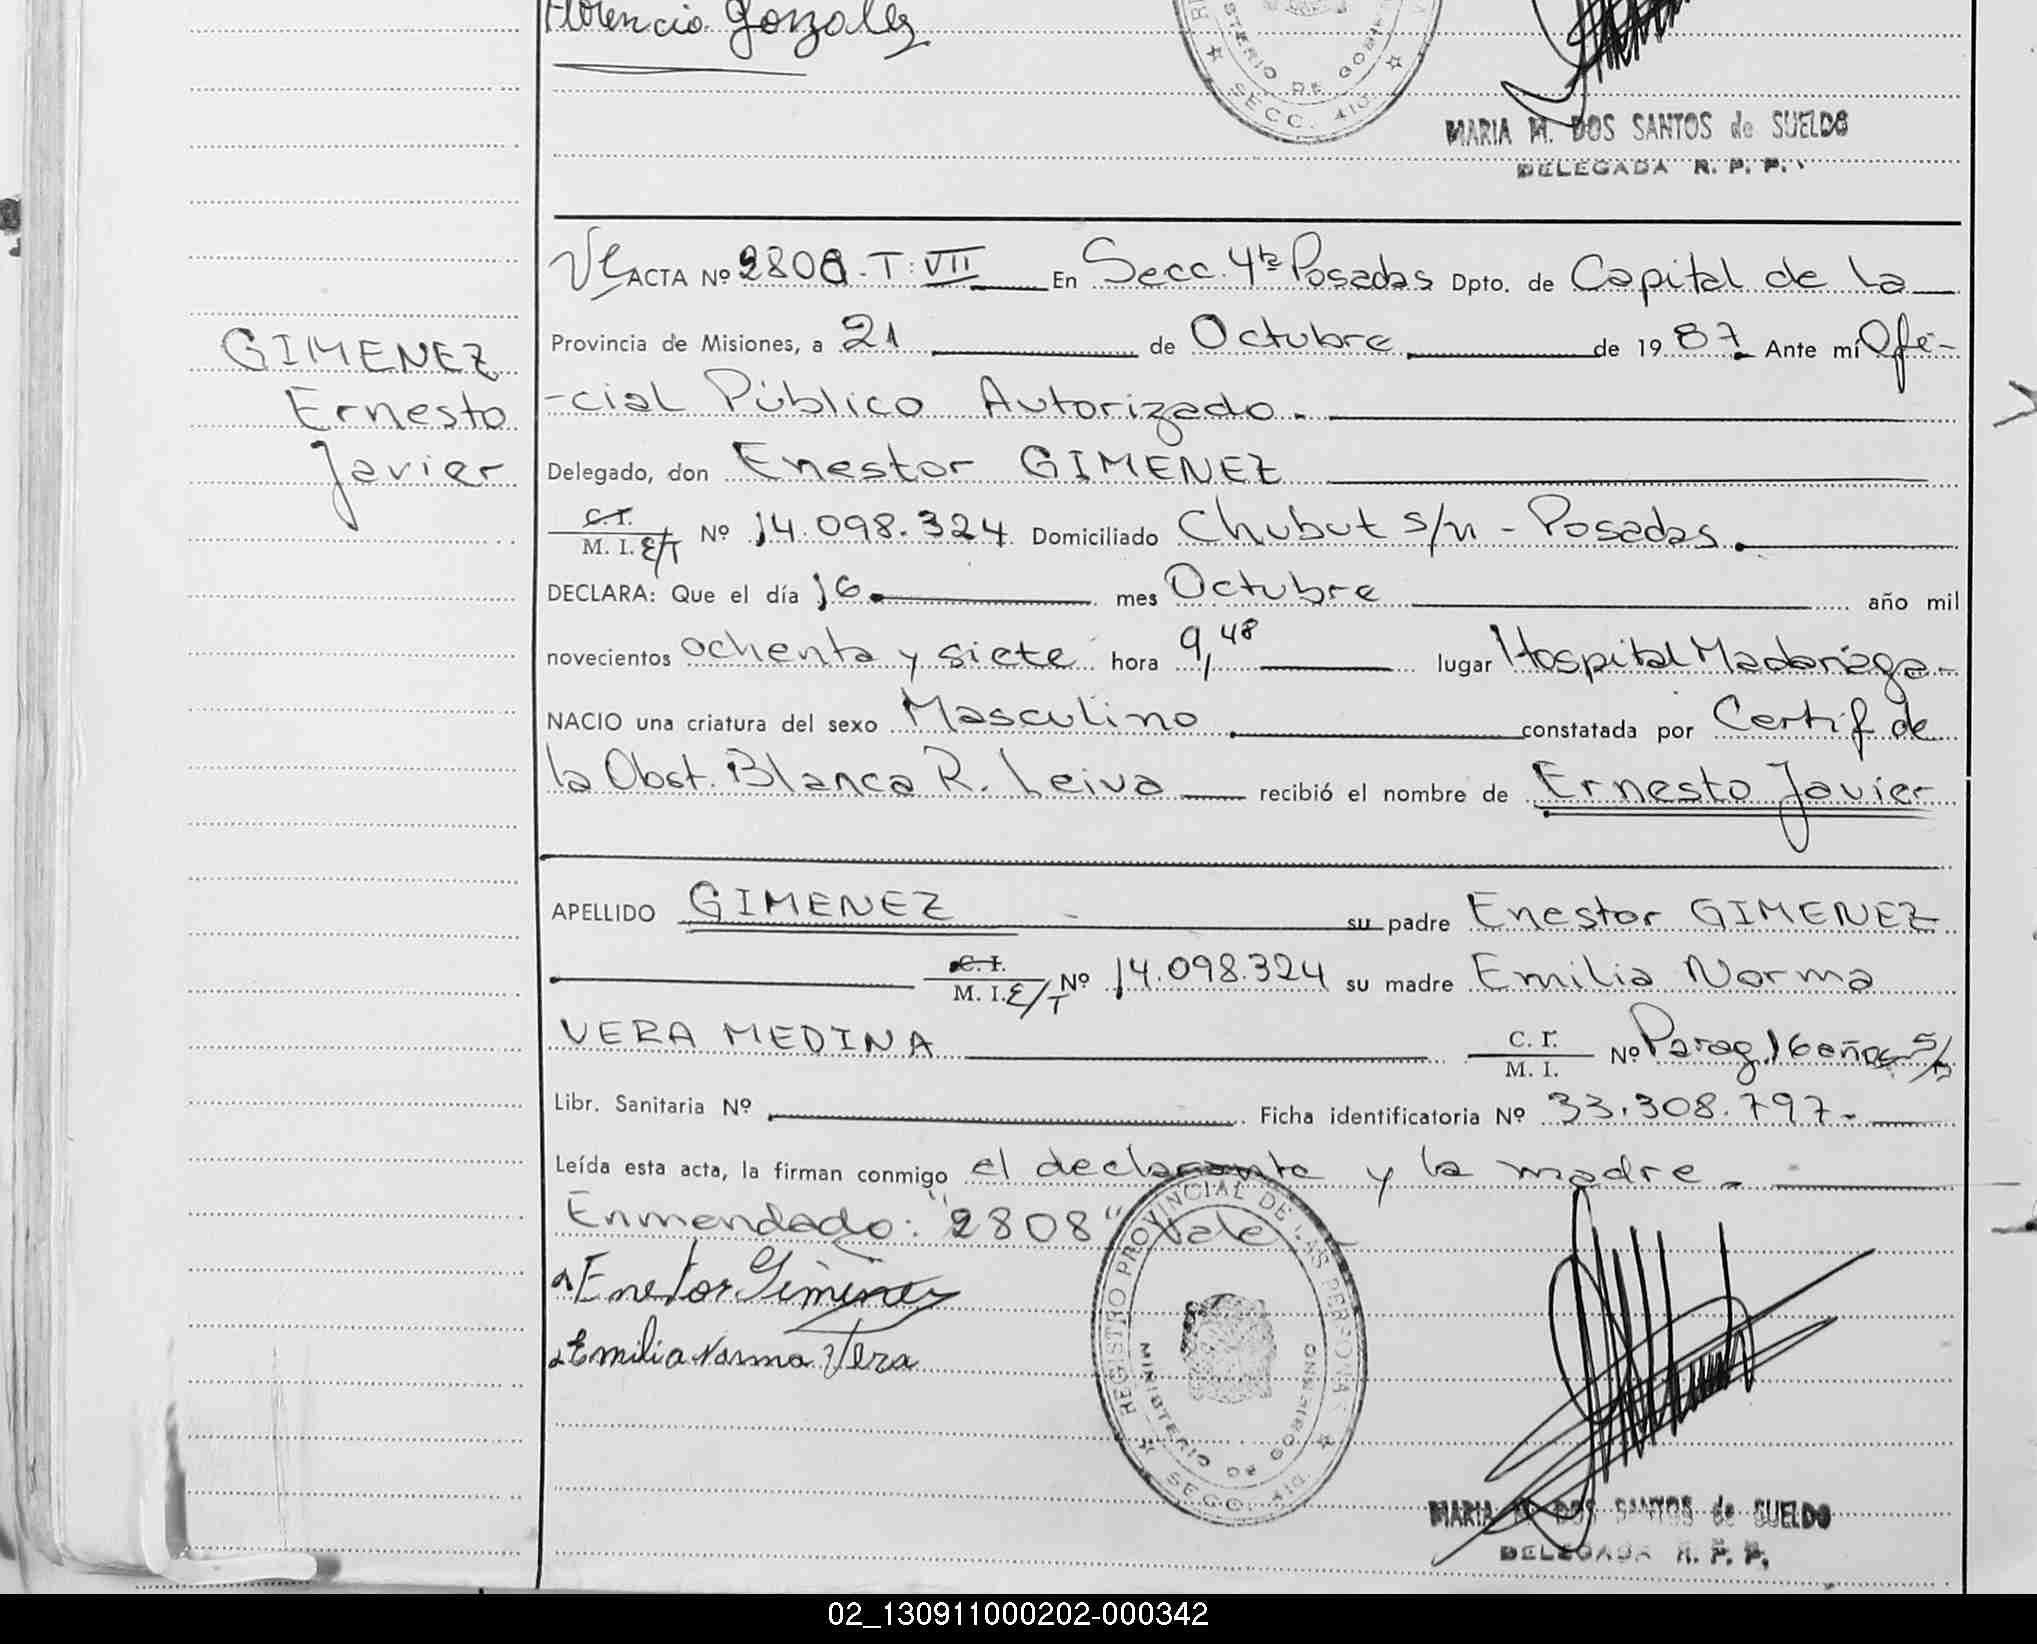 Florencio Gonzalez
MINISTERIO DE GOBIERNO
SECC. 4ta.
MARIA M. DOS SANTOS de SUELDO
DELEGADA R. P. P.
ACTA Nº 2808 - T: VII En Secc. 4ta Posadas Dpto. de Capital de la
Provincia de Misiones, a 21 de Octubre de 1987. Ante mí Ofi-
-cial Público Autorizado.
GIMENEZ
Ernesto
Javier
Delegado, don Enestor GIMENEZ
C.I.
M. I. E/T Nº 14.098.324 Domiciliado Chubut s/n - Posadas.
DECLARA: Que el día 16 mes Octubre año mil
novecientos ochenta y siete hora 9,48 lugar Hospital Madariaga-
NACIO una criatura del sexo Masculino constatada por Certif de
la Obst. Blanca R. Leiva recibió el nombre de Ernesto Javier
APELLIDO GIMENEZ su padre Enestor GIMENEZ
C. I.
M. I. E/T Nº 14.098.324 su madre Emilia Norma
VERA MEDINA C. I. M. I. Nº Parag. 16 años S/D
Libr. Sanitaria Nº Ficha identificatoria Nº 33.308.797-
Leída esta acta, la firman conmigo el declarante y la madre.
Enmendado: "2808" Vale
Enestor Gimenez
Emilia Norma Vera
REGISTRO PROVINCIAL DE LAS PERSONAS
MINISTERIO DE GOBIERNO
SECC. 4ta.
MARIA M. DOS SANTOS de SUELDO
DELEGADA R. P. P.
02_130911000202-000342